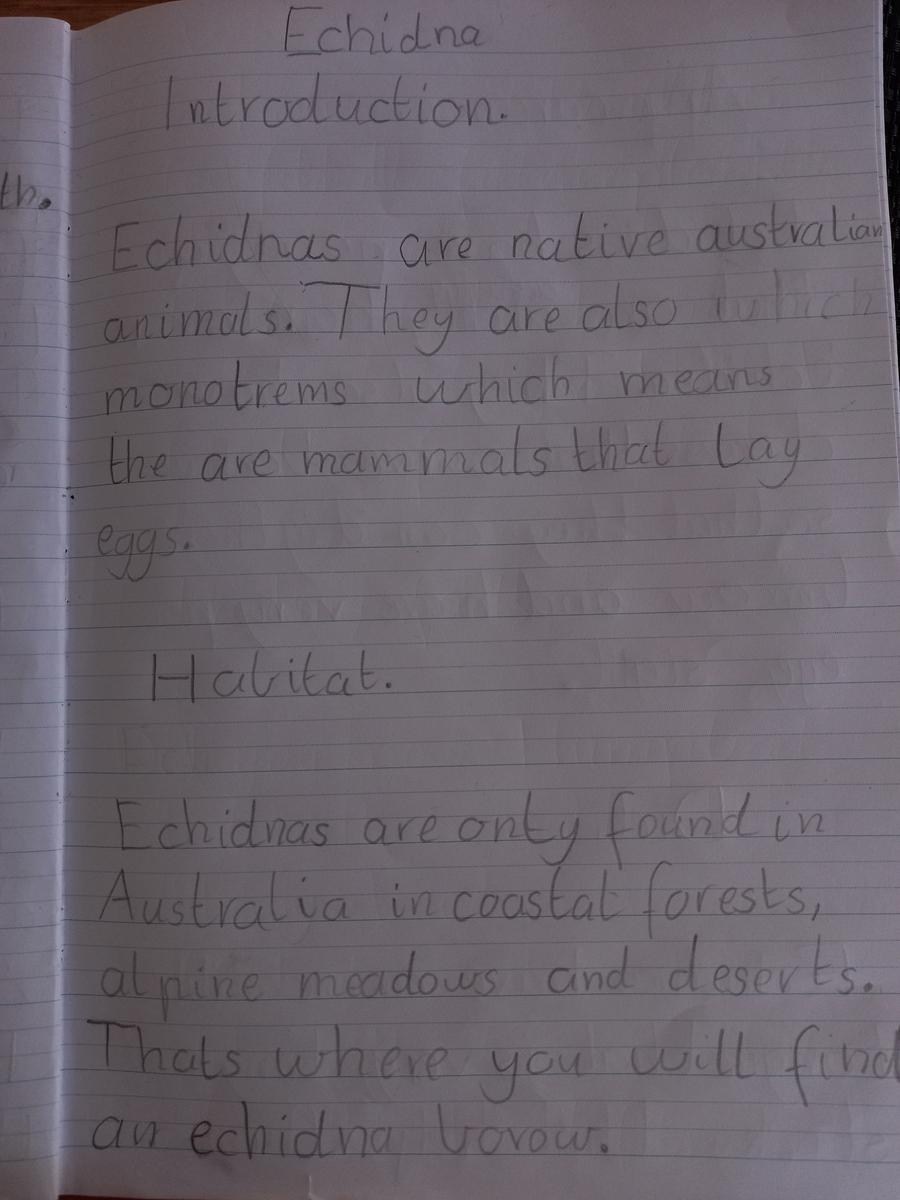 Echidna
Introduction.
th.
Echidnas are native australian
animals. They are also which
monotrems which means
the are mammals that lay
eggs.
Habitat.
Echidnas are only found in
Australia in coastal forests,
alpine meadows and deserts.
Thats where you will find
an echidna borow.